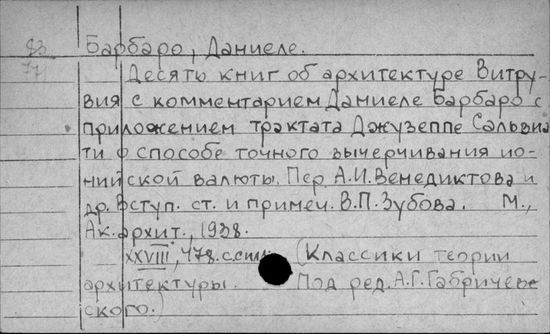 83 Барбаро, Даниеле.
77 Десять книг об архитектуре Витру-
вия с комментарием Даниеле Барбаро с
приложением трактата Джузеппе Сальвиа
ти о способе точного вычерчивания ио-
нийской валюты. Пер. А.И.Венедиктова и
др. Вступ. ст. и примеч. В.П.Зубова. М.,
Ак. архит., 1938.
XXVIII, 478. с. (Классики теории
архитектуры. Под ред. А.Г.Габричев-
ского.)